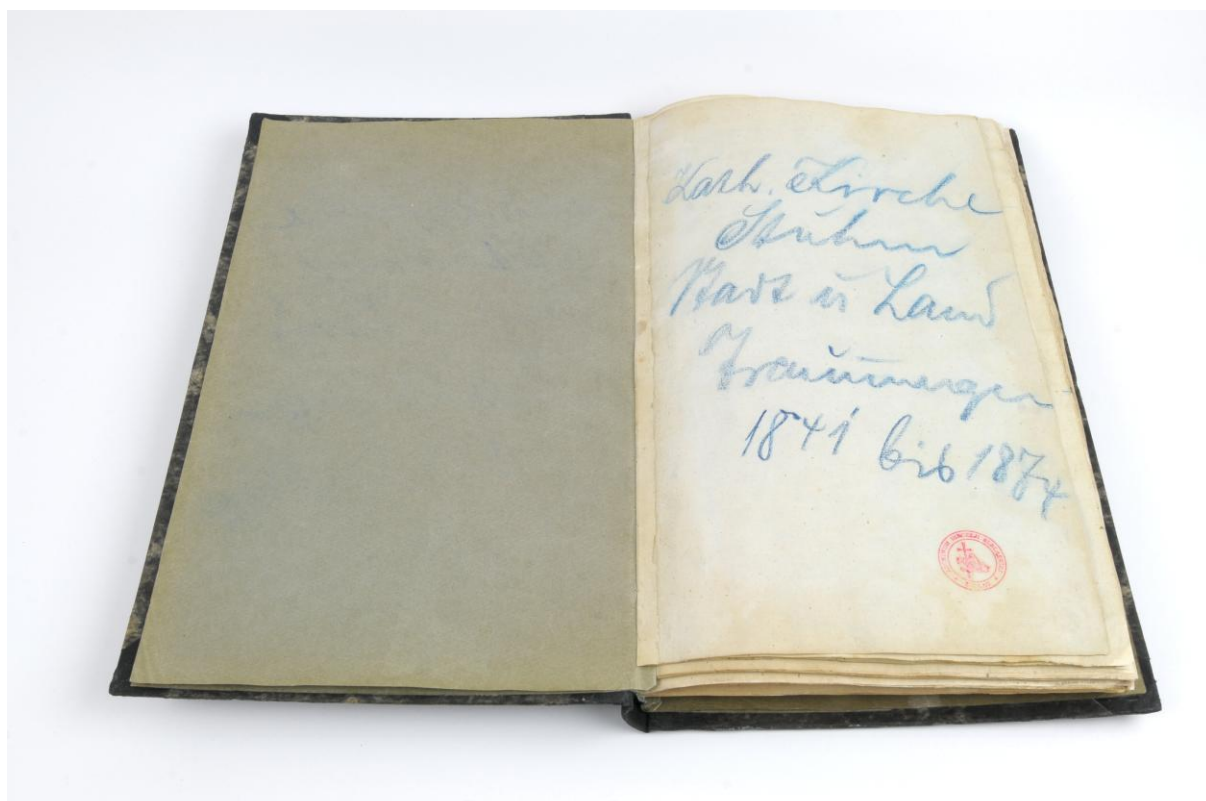 Kath. Kirche
Stuhm
Stadt u Land
Trauungen
1841 bis 1874